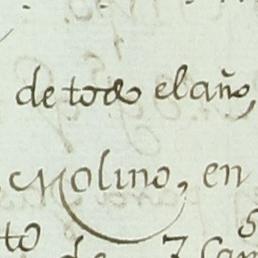 de todo el año,
Molino, en
to de 7